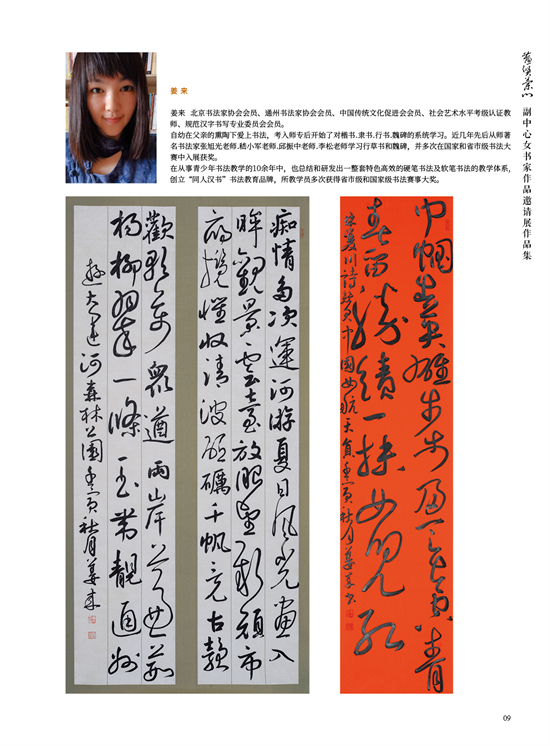 姜 来
姜来  北京书法家协会会员、通州书法家协会会员、中国传统文化促进会会员、社会艺术水平考级认证教
师、规范汉字书写专业委员会会员。
自幼在父亲的熏陶下爱上书法，考入师专后开始了对楷书.隶书.行书.魏碑的系统学习。近几年先后从师著
名书法家张旭光老师.嵇小军老师.邱振中老师.李松老师学习行草书和魏碑，并多次在国家和省市级书法大
赛中入展获奖。
在从事青少年书法教学的10余年中，也总结和研发出一整套特色高效的硬笔书法及软笔书法的教学体系，
创立“同人汉书”书法教育品牌，所教学员多次获得省市级和国家级书法赛事大奖。
副中心女书家作品邀请展作品集
巾帼英雄步步
春留绩一抹女儿红
诗赞中国女航天员壬寅秋月姜来书
痴情多次運河游夏日风光畫入
眸觀景雲臺放眼望彰顏市
府攬懷收清波砥礪千帆竞古韻
歡歌萬衆遒兩岸
楊柳翠一條玉帶靓通州
遊大運河森林公園壬寅秋月姜来
09